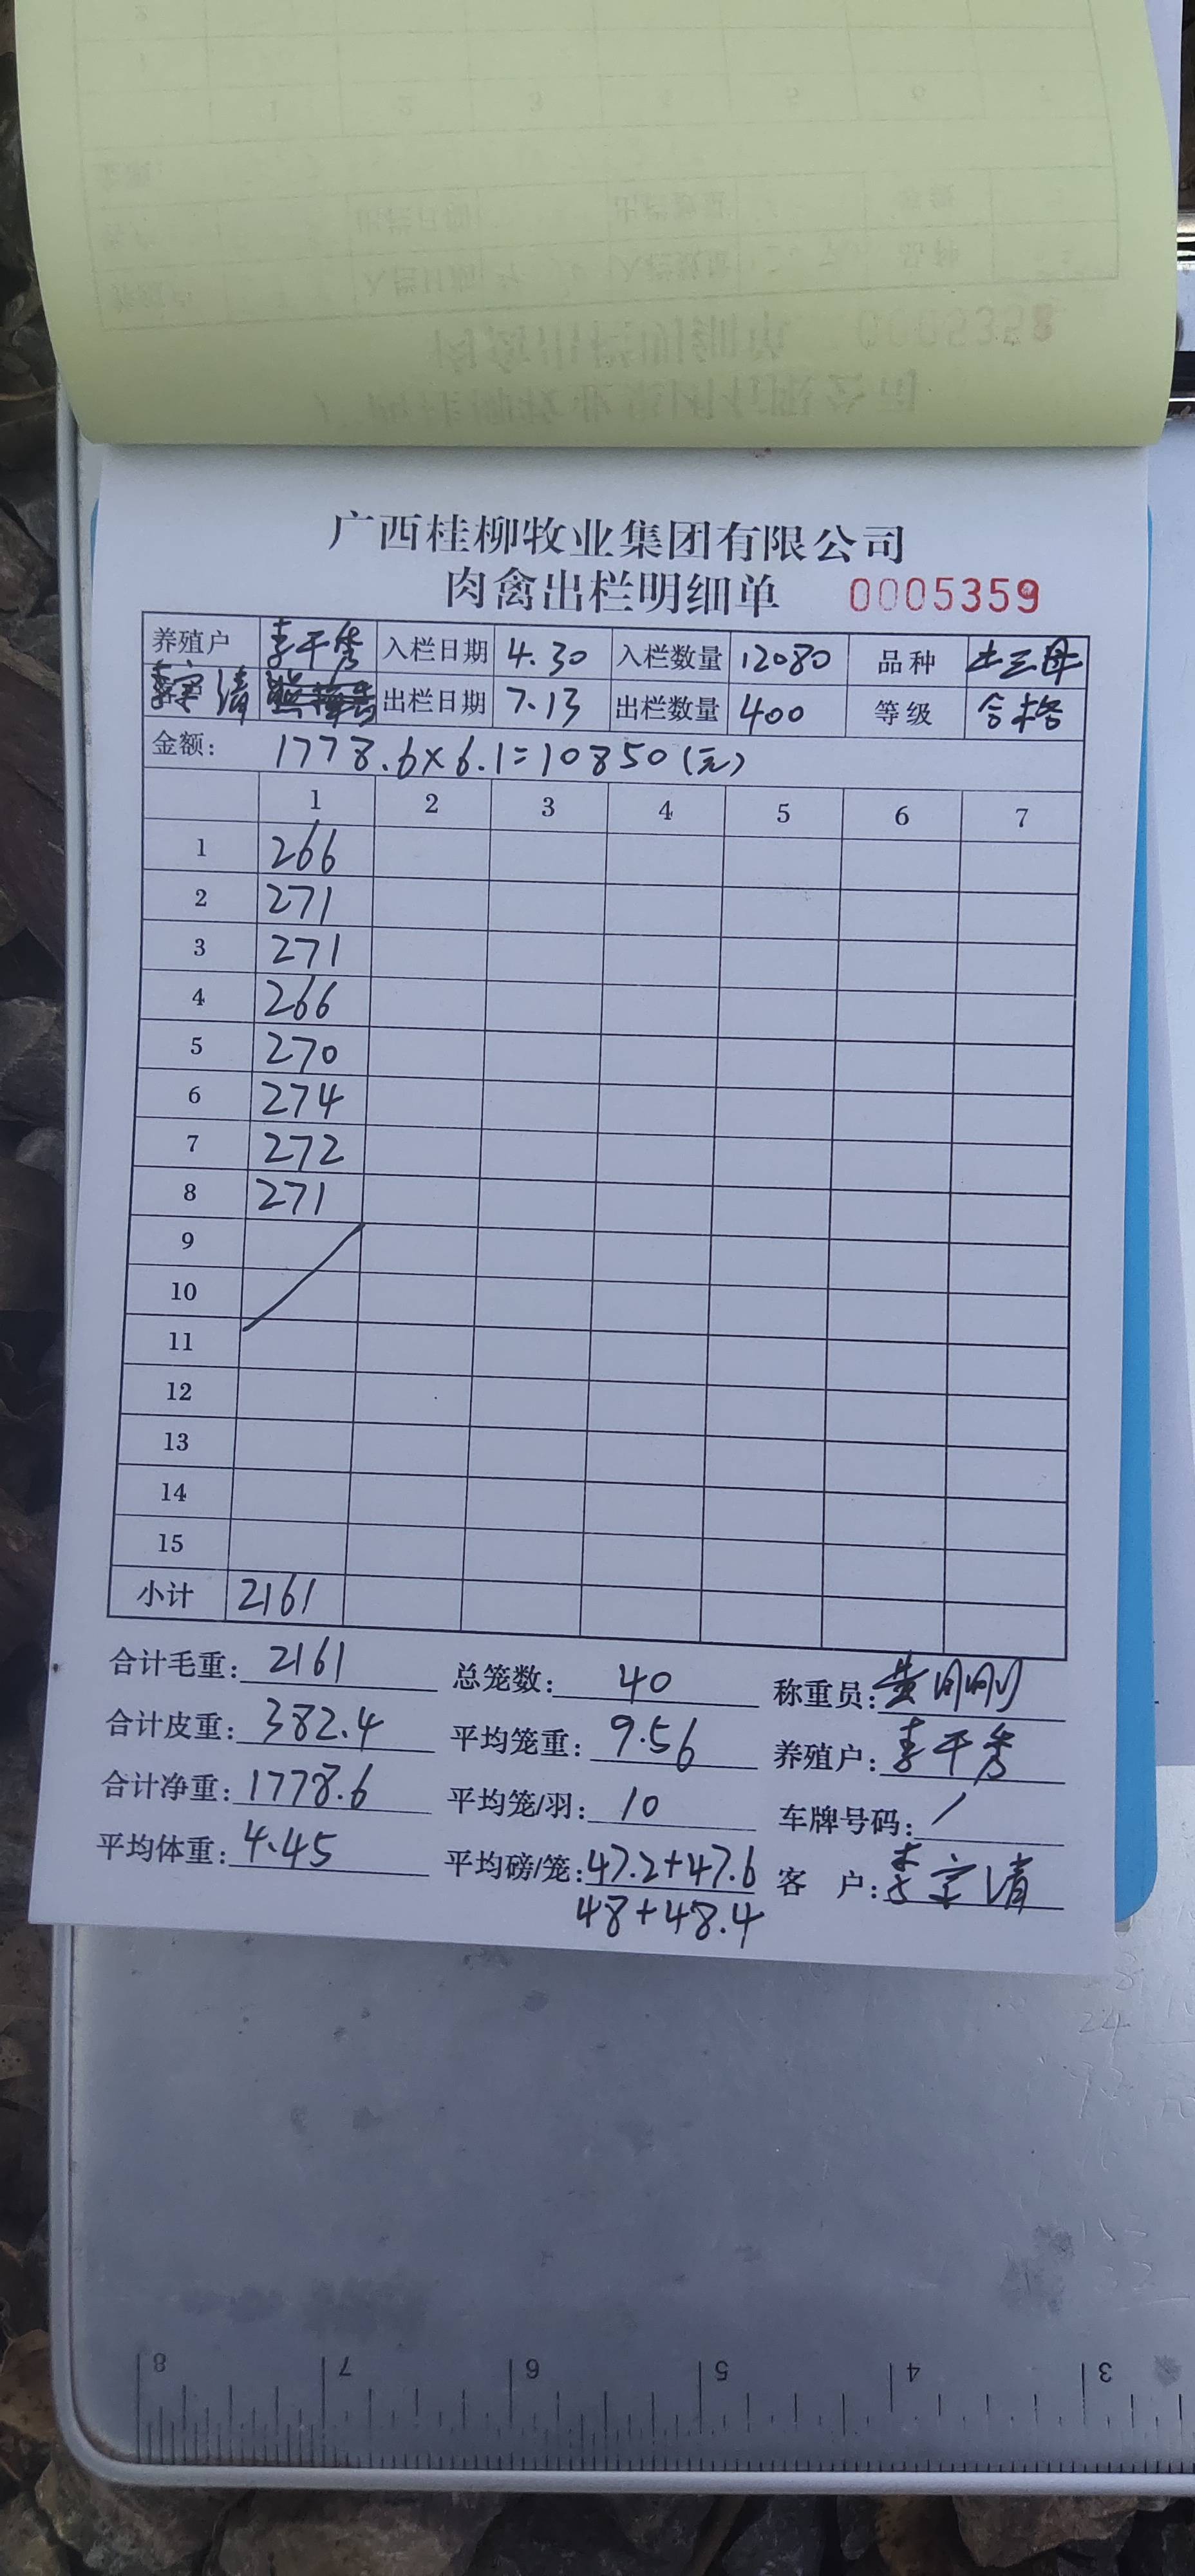 广西桂柳牧业集团有限公司
肉禽出栏明细单 0005359
养殖户 李干秀 入栏日期 4.30 入栏数量 12080 品种 土三母
李宗清 出栏日期 7.13 出栏数量 400 等级 合格
金额: 1778.6×6.1=10850(元)
1 2 3 4 5 6 7
1 266
2 271
3 271
4 266
5 270
6 274
7 272
8 271
9
10
11
12
13
14
15
小计 2161
合计毛重: 2161 总笼数: 40 称重员: 黄刚刚
合计皮重: 382.4 平均笼重: 9.56 养殖户: 李干秀
合计净重: 1778.6 平均笼/羽: 10 车牌号码: /
平均体重: 4.45 平均磅/笼: 47.2+47.6 客 户: 李宗清
48+48.4
8 7 6 5 4 3